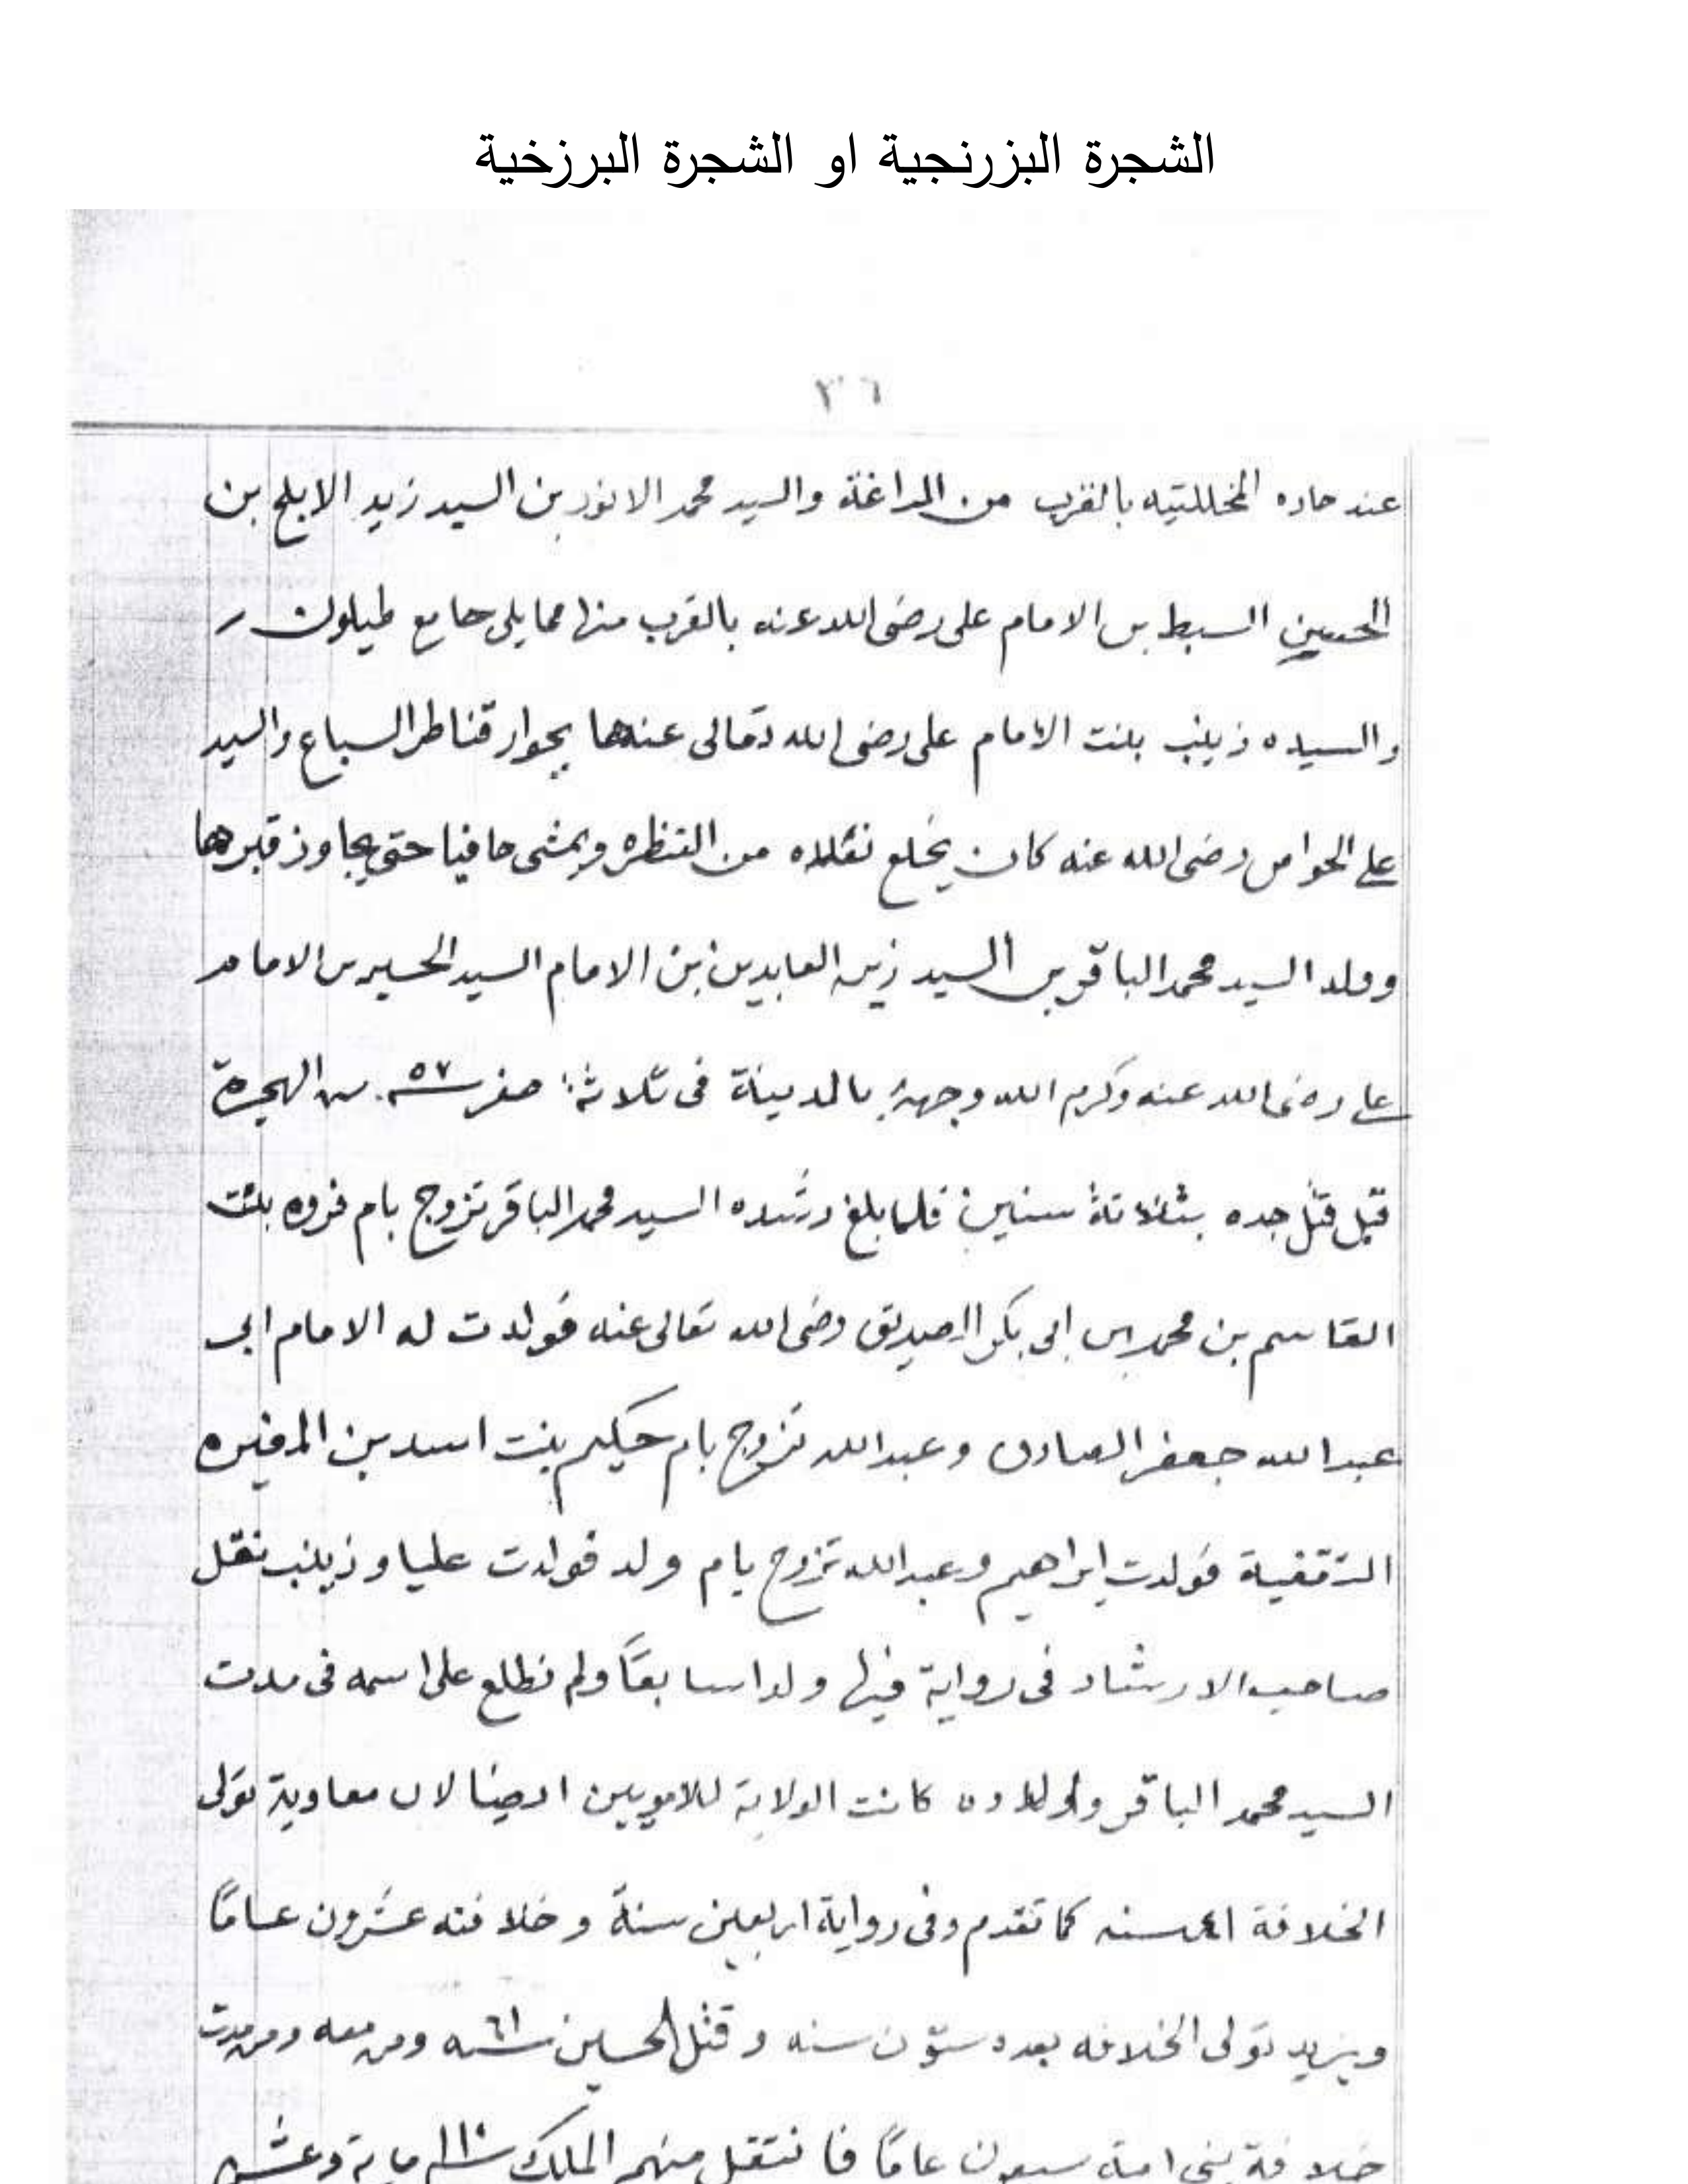 الشجرة البزرنجية او الشجرة البرزخية
٣٦
عند حاره بالقرب من المراغة والسيد محمد الانور بن السيد زيد الابلج بن
الحسين السبط بن الامام على رضى الله عنه بالقرب منها مما يلى جامع طيلون
والسيده زينب بنت الامام على رضى الله تعالى عنها بجوار قناطر السباع والسيد
على الخواص رضى الله عنه كان يخلع من القنطره ويمشى حافيا حتى يجاوز قبرها
وولد السيد محمد الباقر بن السيد زين العابدين بن الامام السيد الحسين بن الامام
على رضى الله عنه وكرم الله وجهه بالمدينة فى ثلاثة صفر سنه ٥٧ من الهجرة
قبل قتل جده بثلاثة سنين فلما بلغ رشده السيد محمد الباقر تزوج بام فروه بنت
القاسم بن محمد بن ابى بكر الصديق رضى الله تعالى عنه فولدت له الامام ابى
عبد الله جعفر الصادق وعبد الله تزوج بام حكيم بنت اسد بن المغيره
الثقفية فولدت ابراهيم وعبد الله تزوج بام ولد فولدت عليا وزينب نقل
صاحب الارشاد فى رواية فيها ولدا سابعًا ولم نطلع على اسمه فى مدت
السيد محمد الباقر واولاده كانت الولاية للامويين ايضا لان معاوية تولى
الخلافة ٤١ سنه كما تقدم وفى رواية اربعين سنة وخلافته عشرون عامًا
ويزيد تولى الخلافه بعده ستون سنه وقتل الحسين سنه ٦١ ومن معه ومن مدت
خلافة بنى امية سبعون عامًا فانتقل منهم الملك سنه ١١٠ ماية وعشر